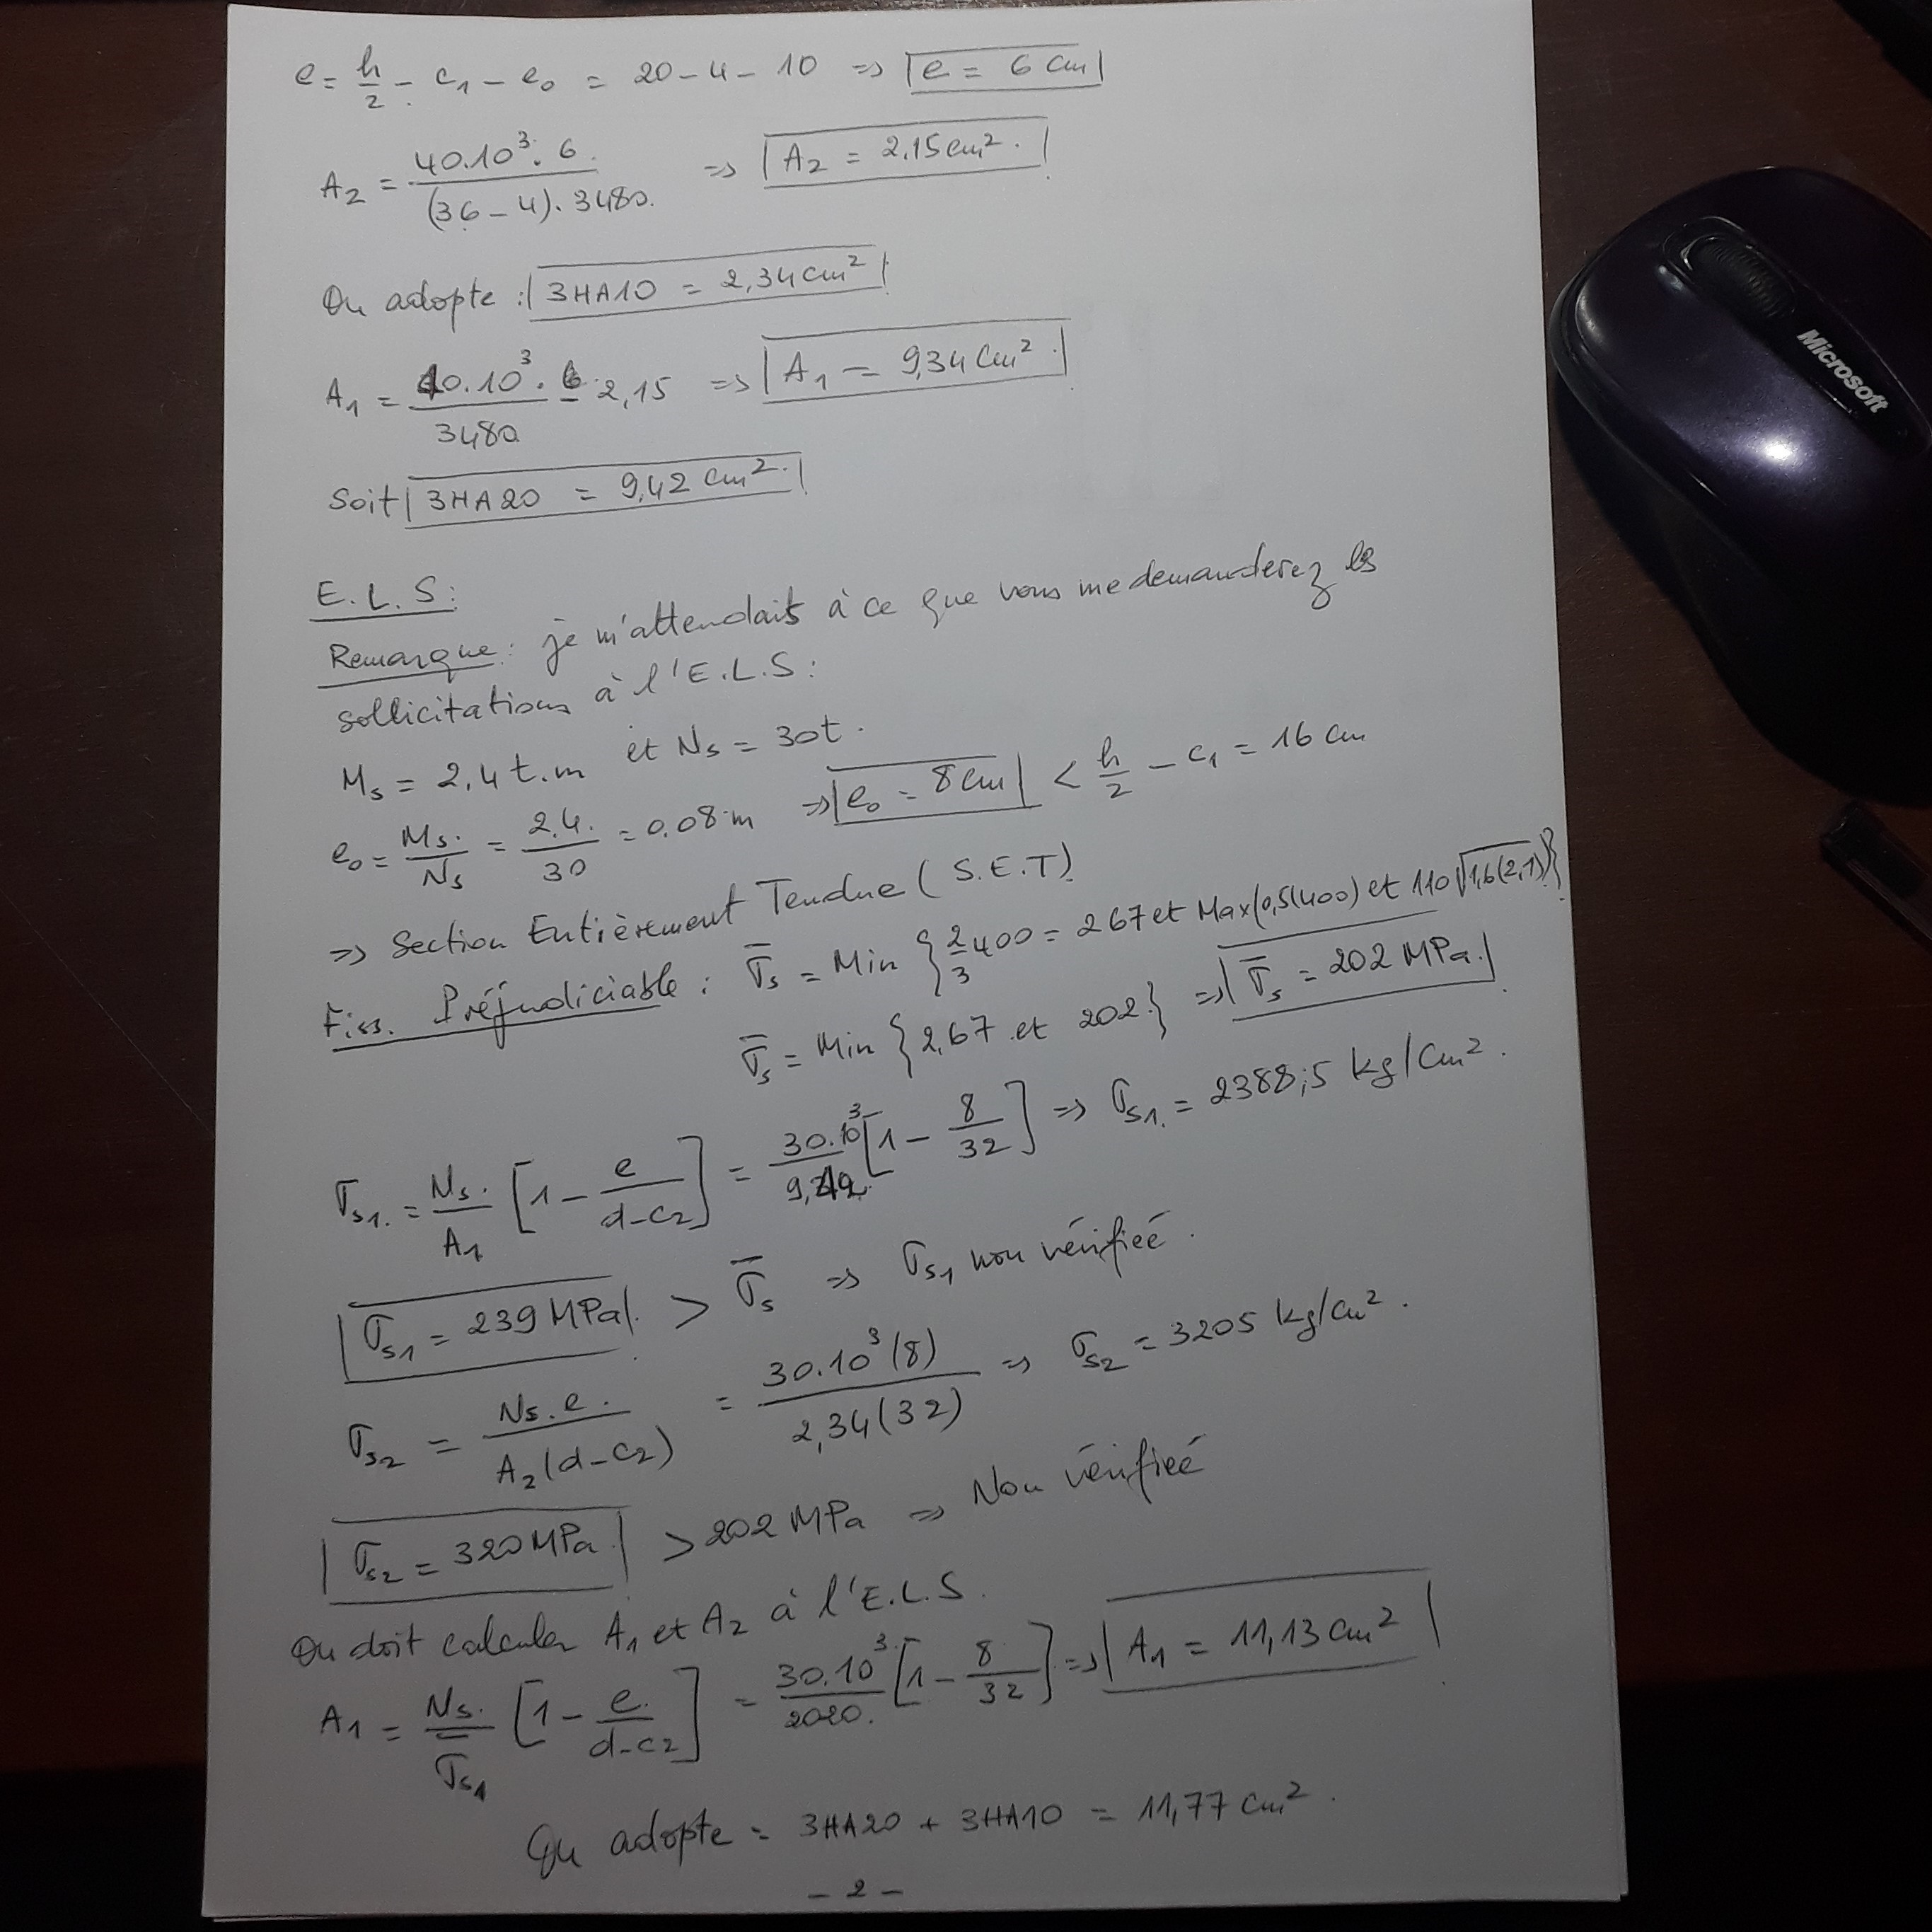 e = h/2 - c₁ - e₀ = 20 - 4 - 10 => e = 6 cm
A₂ = 40.10³. 6 / (36 - 4). 3480. => A₂ = 2,15 cm².
On adopte : 3HA10 = 2,34 cm²
A₁ = 40.10³ / 3480 - 2,15 => A₁ = 9,34 cm².
Soit 3HA20 = 9,42 cm².
E.L.S:
Remarque: je m'attendais à ce que vous me demanderez les
sollicitations à l'E.L.S:
Ms = 2,4 t.m et Ns = 30t.
e₀ = Ms. / Ns = 2.4. / 30 = 0.08 m => e₀ = 8 cm < h/2 - c₁ = 16 cm
=> Section Entièrement Tendue (S.E.T)
Fiss. Préjudiciable : σ̄s = Min { 2/3 400 = 267 et Max(0,5(400) et 110 √1,6(2,1))}
σ̄s = Min {2,67 et 202.} => σ̄s = 202 MPa.
σs1. = Ns. / A₁ [1 - e / d-c₂] = 30.10³ / 9,42 [1 - 8/32] => σs1. = 2388,5 kg/cm².
σs1 = 239 MPa. > σ̄s => σs1 non vérifieé.
σs2 = Ns.e. / A₂(d-c₂) = 30.10³(8) / 2,34(32) => σs2 = 3205 kg/cm².
σs2 = 320 MPa. > 202 MPa => Non vérifieé
On doit calculer A₁ et A₂ à l'E.L.S.
A₁ = Ns. / σ̄s1 [1 - e. / d-c₂] = 30.10³ / 2020. [1 - 8/32] => A₁ = 11,13 cm²
On adopte = 3HA20 + 3HA10 = 11,77 cm².
- 2 -
Microsoft